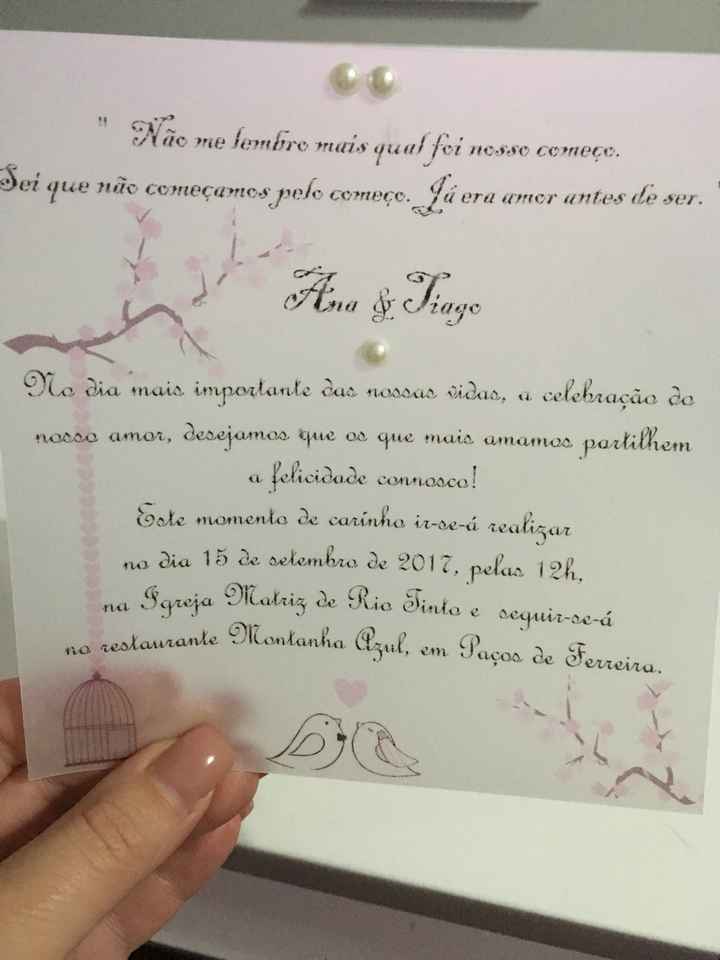 " Não me lembro mais qual foi nosso começo.
Sei que não começamos pelo começo. Já era amor antes de ser. "
Ana & Tiago
No dia mais importante das nossas vidas, a celebração do
nosso amor, desejamos que os que mais amamos partilhem
a felicidade connosco!
Este momento de carinho ir-se-á realizar
no dia 15 de setembro de 2017, pelas 12h,
na Igreja Matriz de Rio Tinto e seguir-se-á
no restaurante Montanha Azul, em Paços de Ferreira.